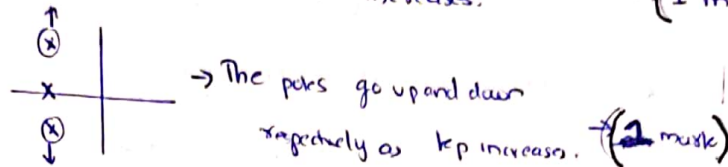 → The poles go up and down
respectively as kp increases. → (1 mark)